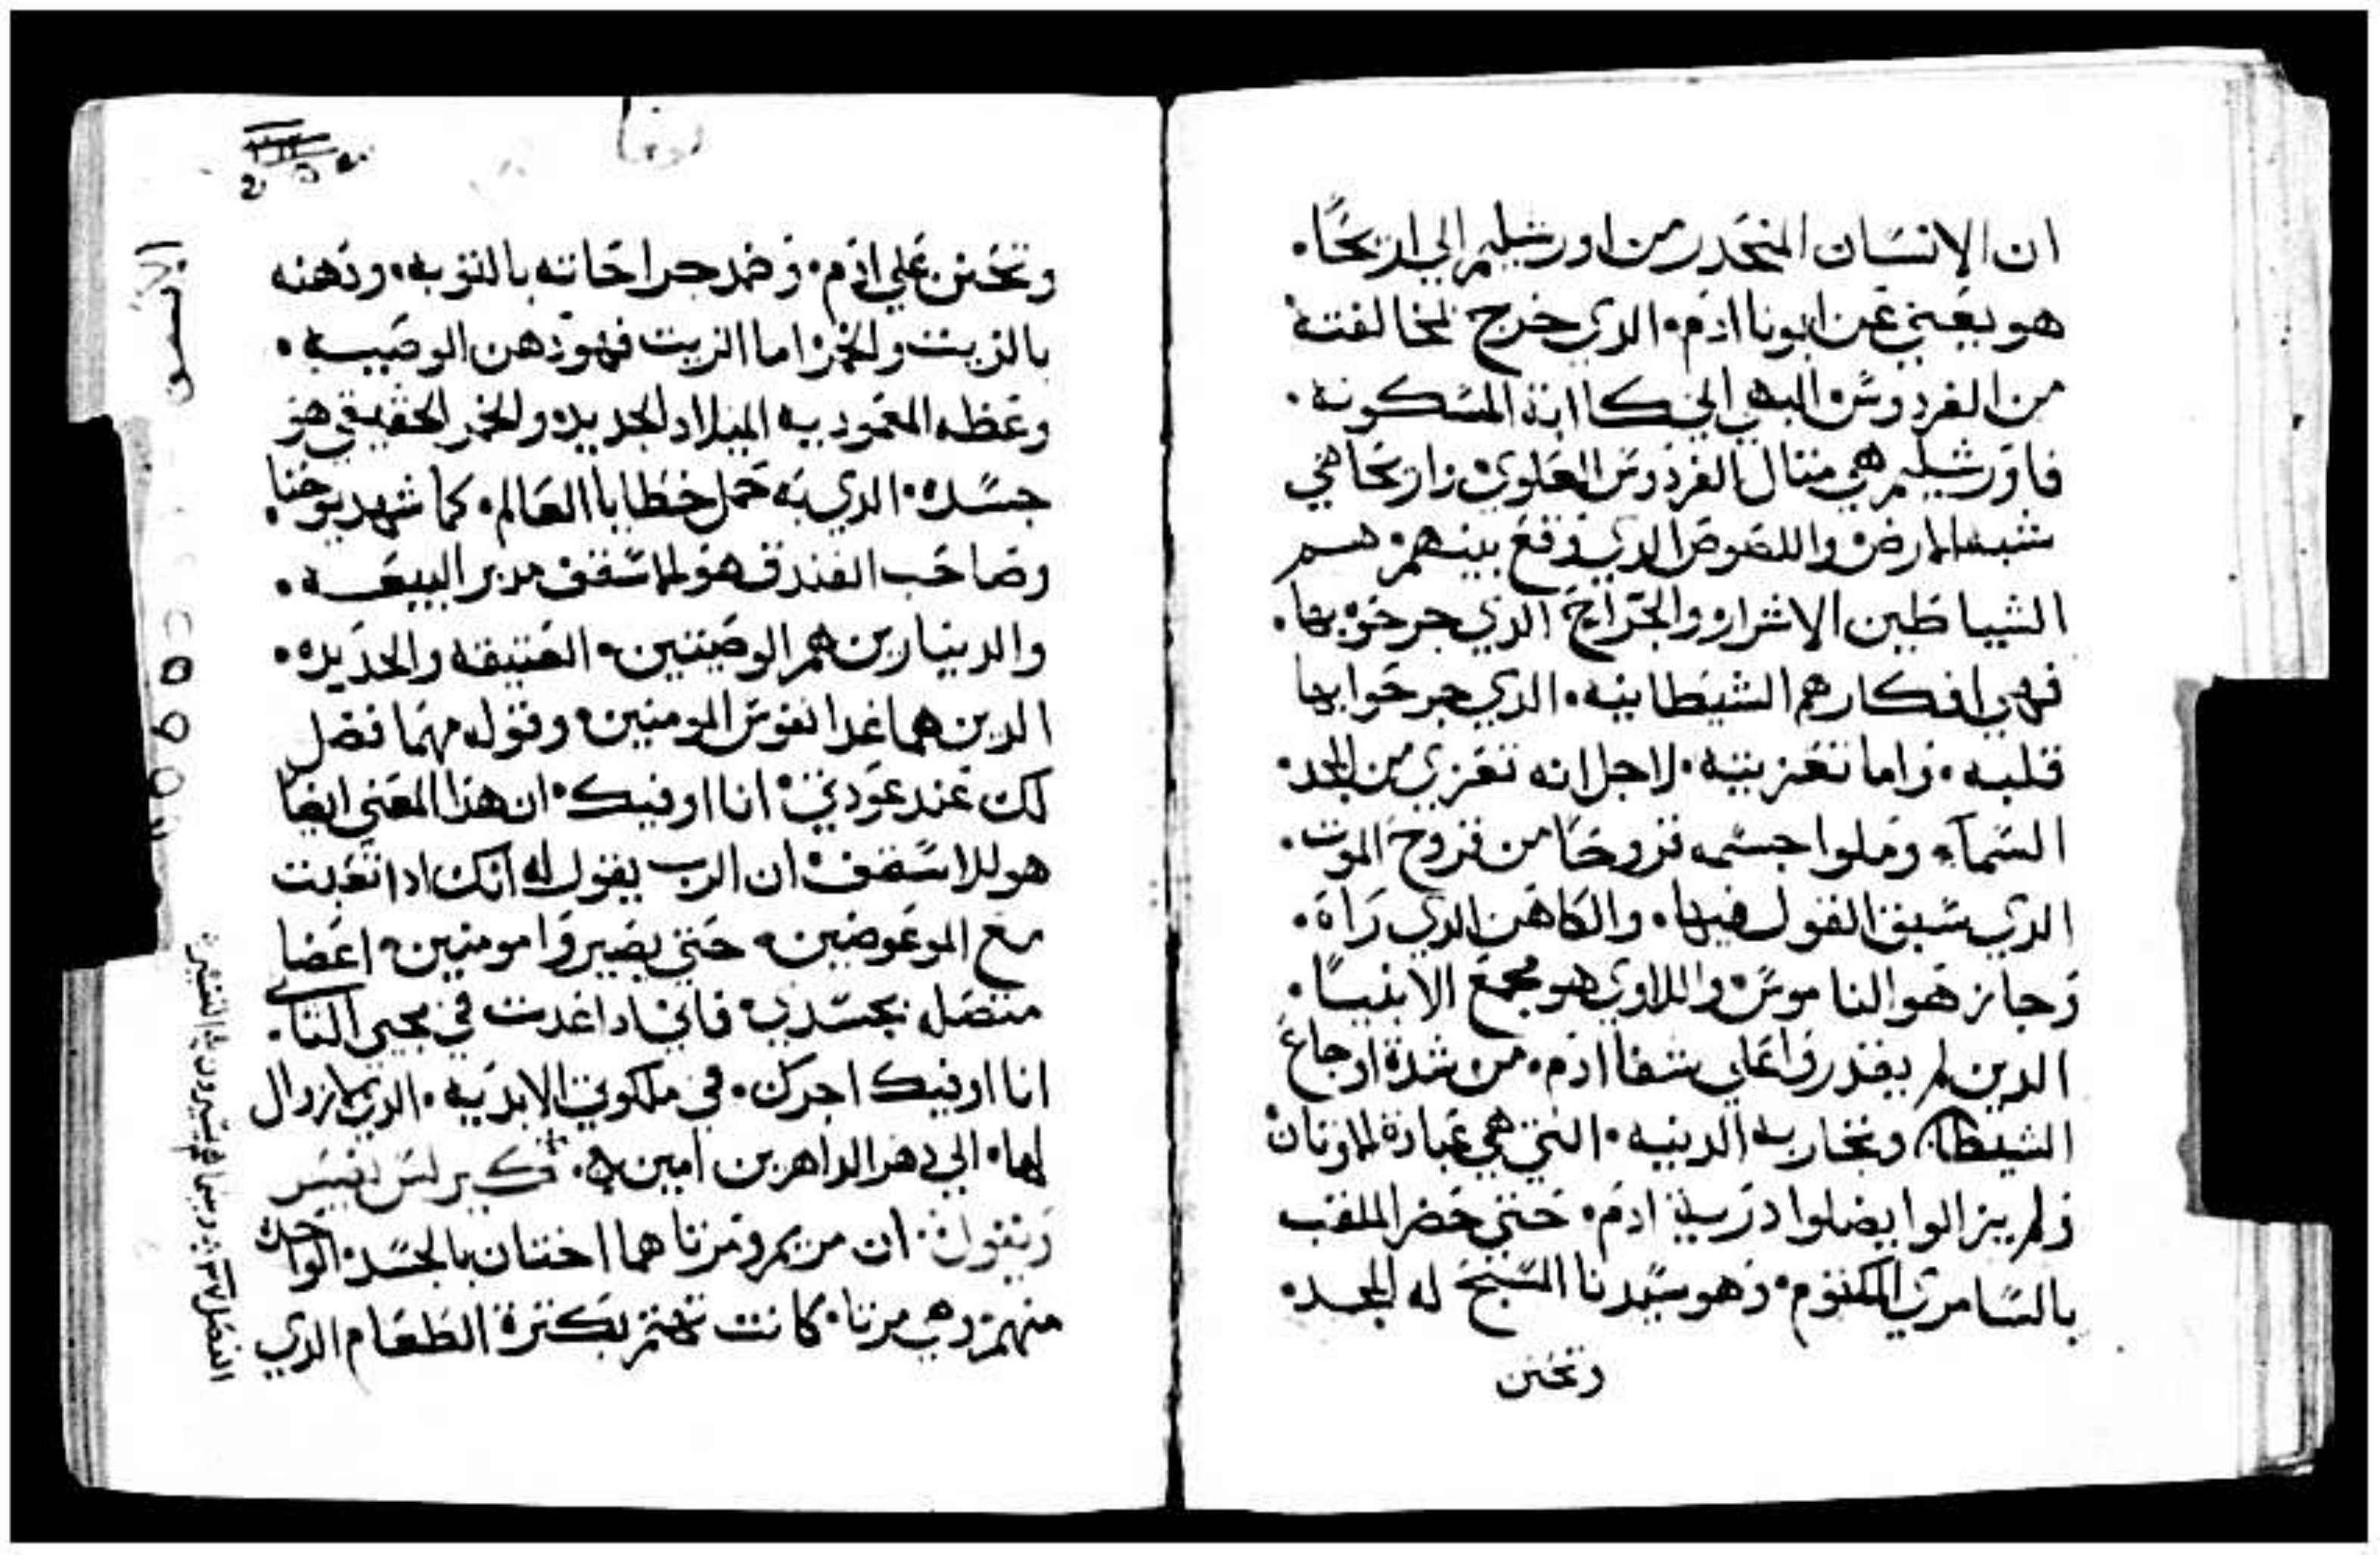 ان الإنسان المنحدر من اورشليم الي اريحا.
هو يعني عن ابونا ادم. الدي خرج لمخالفته
من الفردوس البهي الي كاابة المسكونه.
فاورشليم هي متال الفردوس العلوي. واريحا هي
شبه الارض. واللصوص الدي وقع بينهم. هم
الشياطين الاشرار. والجراح الدي جرحوه بها.
فهي افكارهم الشيطانيه. الدي جرحوا بها
قلبه. واما تعزيته. لاجل انه تعزي من المجد.
السمآء وملوا جسمه قروحا من قروح الموت.
الدي سبق القول فيها. والكاهن الدي رآة.
وجاز هو الناموس. واللاوي هو مجمع الانبيا.
الدين لم يقدروا علي شفا ادم. من شدة اوجاع
الشيطان وتجاربه الدنيه. التي هي عبادة الاوتان
ولم يزالوا يضلوا درية ادم. حتي حضر الملقب
بالسامري المكتوم. وهو سيدنا المسيح له المجد.
وتحنن
لوقا
وتحنن علي ادم. وضمد جراحاته بالتوبه. ودهنه
بالزيت والخمر اما الزيت فهو دهن الوصيه.
وعظه المعموديه الميلاد الجديد. والخمر الحقيقي هو
جسده. الدي به حمل خطايا العالم. كما شهد يوحنا.
وصاحب الفندق هو الاسقف مدبر البيعه.
والدينارين هم الوصيتين. العتيقه والجديده.
الدين هما غدا نفوس المومنين. وقوله مهما فضل
لك عند عودتي. انا اوفيك. ان هذا المعني ايضا
هو للاسقف. ان الرب يقول له انك ادا تعبت
مع الموعوضين. حتي يصيروا مومنين. اعضا
متصله بجسدي. فاني ادا عدت في مجيي التاني.
انا اوفيك اجرك. في ملكوتي الابديه. الدي لا زوال
لها. الي دهر الداهرين امين. كيرلس يفسر
ويقول. ان مريم ومرتا هما اختان بالجسد. الواحده
منهم. وهي مرتا. كانت تهتم بكترة الطعام الدي